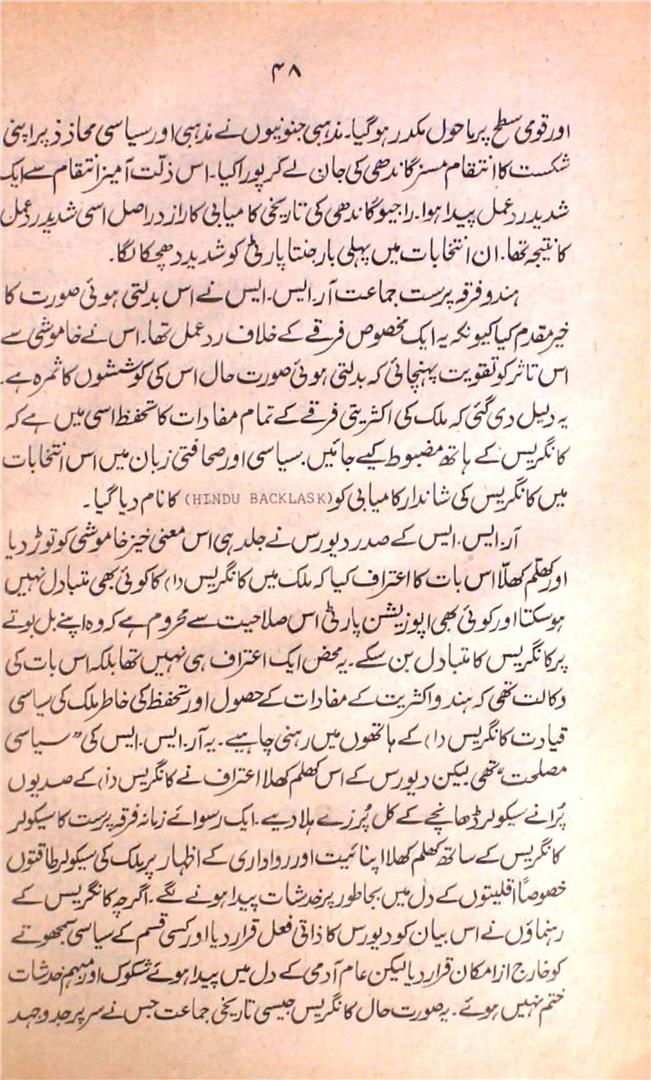 ۴۸
اور قومی سطح پر ماحول مکدر ہوگیا۔ مذہبی جنونیوں نے مذہبی اور سیاسی محاذ پر اپنی
شکست کا انتقام مسز گاندھی کی جان لے کر پورا کیا۔ اس ذلّت آمیز انتقام سے ایک
شدید ردعمل پیدا ہوا۔ راجیو گاندھی کی تاریخی کامیابی کا راز دراصل اسی شدید ردعمل
کا نتیجہ تھا۔ ان انتخابات میں پہلی بار جنتا پارٹی کو شدید دھچکا لگا۔
ہندو فرقہ پرست جماعت آر۔ ایس۔ ایس نے اس بدلتی ہوئی صورت کا
خیرمقدم کیا کیونکہ یہ ایک مخصوص فرقے کے خلاف ردعمل تھا۔ اس نے خاموشی سے
اس تاثر کو تقویت پہنچائی کہ بدلتی ہوئی صورت حال اس کی کوششوں کا ثمرہ ہے۔
یہ دلیل دی گئی کہ ملک کی اکثریتی فرقے کے تمام مفادات کا تحفظ اسی میں ہے کہ
کانگریس کے ہاتھ مضبوط کیے جائیں۔ سیاسی اور صحافتی زبان میں اس انتخابات
میں کانگریس کی شاندار کامیابی کو (HINDU BACKLASK) کا نام دیا گیا۔
آر۔ ایس۔ ایس کے صدر دیورس نے جلد ہی اس معنی خیز خاموشی کو توڑ دیا
اور کھلم کھلّا اس بات کا اعتراف کیا کہ ملک میں کانگریس (۱) کا کوئی بھی متبادل نہیں
ہوسکتا اور کوئی بھی اپوزیشن پارٹی اس صلاحیت سے محروم ہے کہ وہ اپنے بل بوتے
پر کانگریس کا متبادل بن سکے۔ یہ محض ایک اعتراف ہی نہیں تھا بلکہ اس بات کی
وکالت تھی کہ ہندو اکثریت کے مفادات کے حصول اور تحفظ کی خاطر ملک کی سیاسی
قیادت کانگریس (۱) کے ہاتھوں میں رہنی چاہیے۔ یہ آر۔ ایس۔ ایس کی ”سیاسی
مصلحت“ تھی لیکن دیورس کے اس کھلم کھلا اعتراف نے کانگریس (۱) کے صدیوں
پُرانے سیکولر ڈھانچے کے کل پُرزے ہلا دیے۔ ایک رسوائے زمانہ فرقہ پرست کا سیکولر
کانگریس کے ساتھ کھلم کھلا اپنائیت اور رواداری کے اظہار پر ملک کی سیکولر طاقتوں
خصوصاً اقلیتوں کے دل میں بجا طور پر خدشات پیدا ہونے لگے۔ اگرچہ کانگریس کے
رہنماؤں نے اس بیان کو دیورس کا ذاتی فعل قرار دیا اور کسی قسم کے سیاسی سمجھوتے
کو خارج از امکان قرار دیا لیکن عام آدمی کے دل میں پیدا ہوئے شکوک اور مبہم خدشات
ختم نہیں ہوئے۔ یہ صورت حال کانگریس جیسی تاریخی جماعت جس نے سر پر جدوجہد